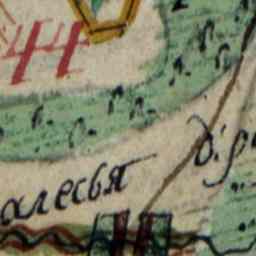 44
алесья
др